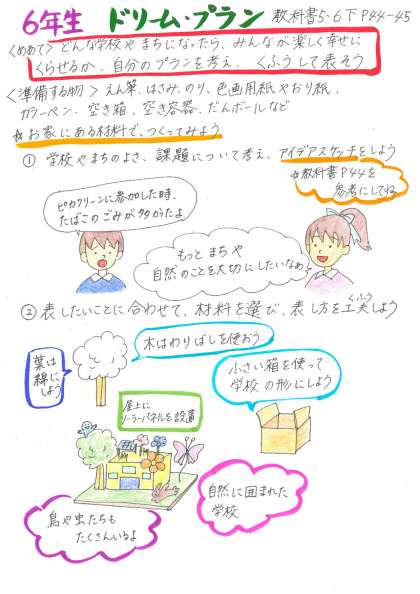 6年生 ドリーム・プラン 教科書5・6下P44-45
<めあて> どんな学校や まちになったら、みんなが楽しく幸せに
くらせるか、自分のプランを考え、くふうして表そう
<準備する物> えん筆、はさみ、のり、色画用紙やおり紙、
カラーペン、空き箱、空き容器、だんボールなど
☆お家にある材料で、つくってみよう
① 学校やまちのよさ、課題について考え、アイデアスケッチをしよう
☆教科書P44を
参考にしてね
ピカクリーンに参加した時、
たばこのごみが多かったよ
もっと まちや
自然のことを大切にしたいなあ
② 表したいことに合わせて、材料を選び、表し方を工夫しよう
くふう
木はわりばしを使おう
葉は
綿に
しよう
小さい箱を使って
学校の形にしよう
屋上に
ソーラーパネルを設置
自然に囲まれた
学校
鳥や虫たちも
たくさんいるよ